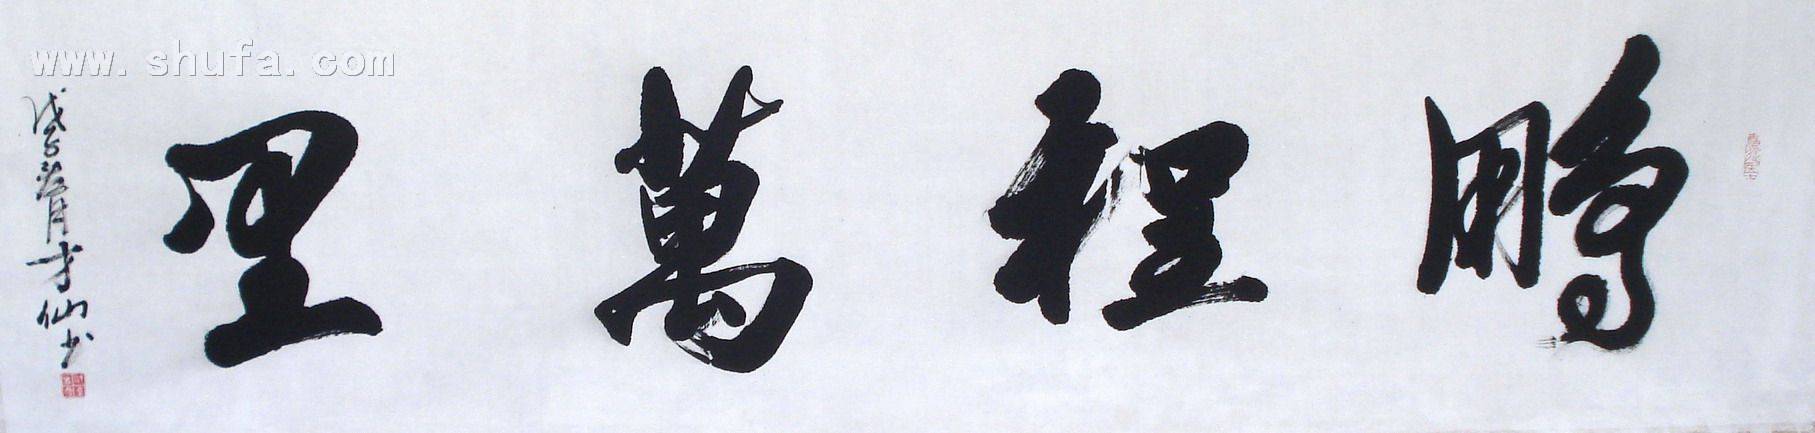 鵬程萬里
戊子荷月才仙书
www.shufa.com